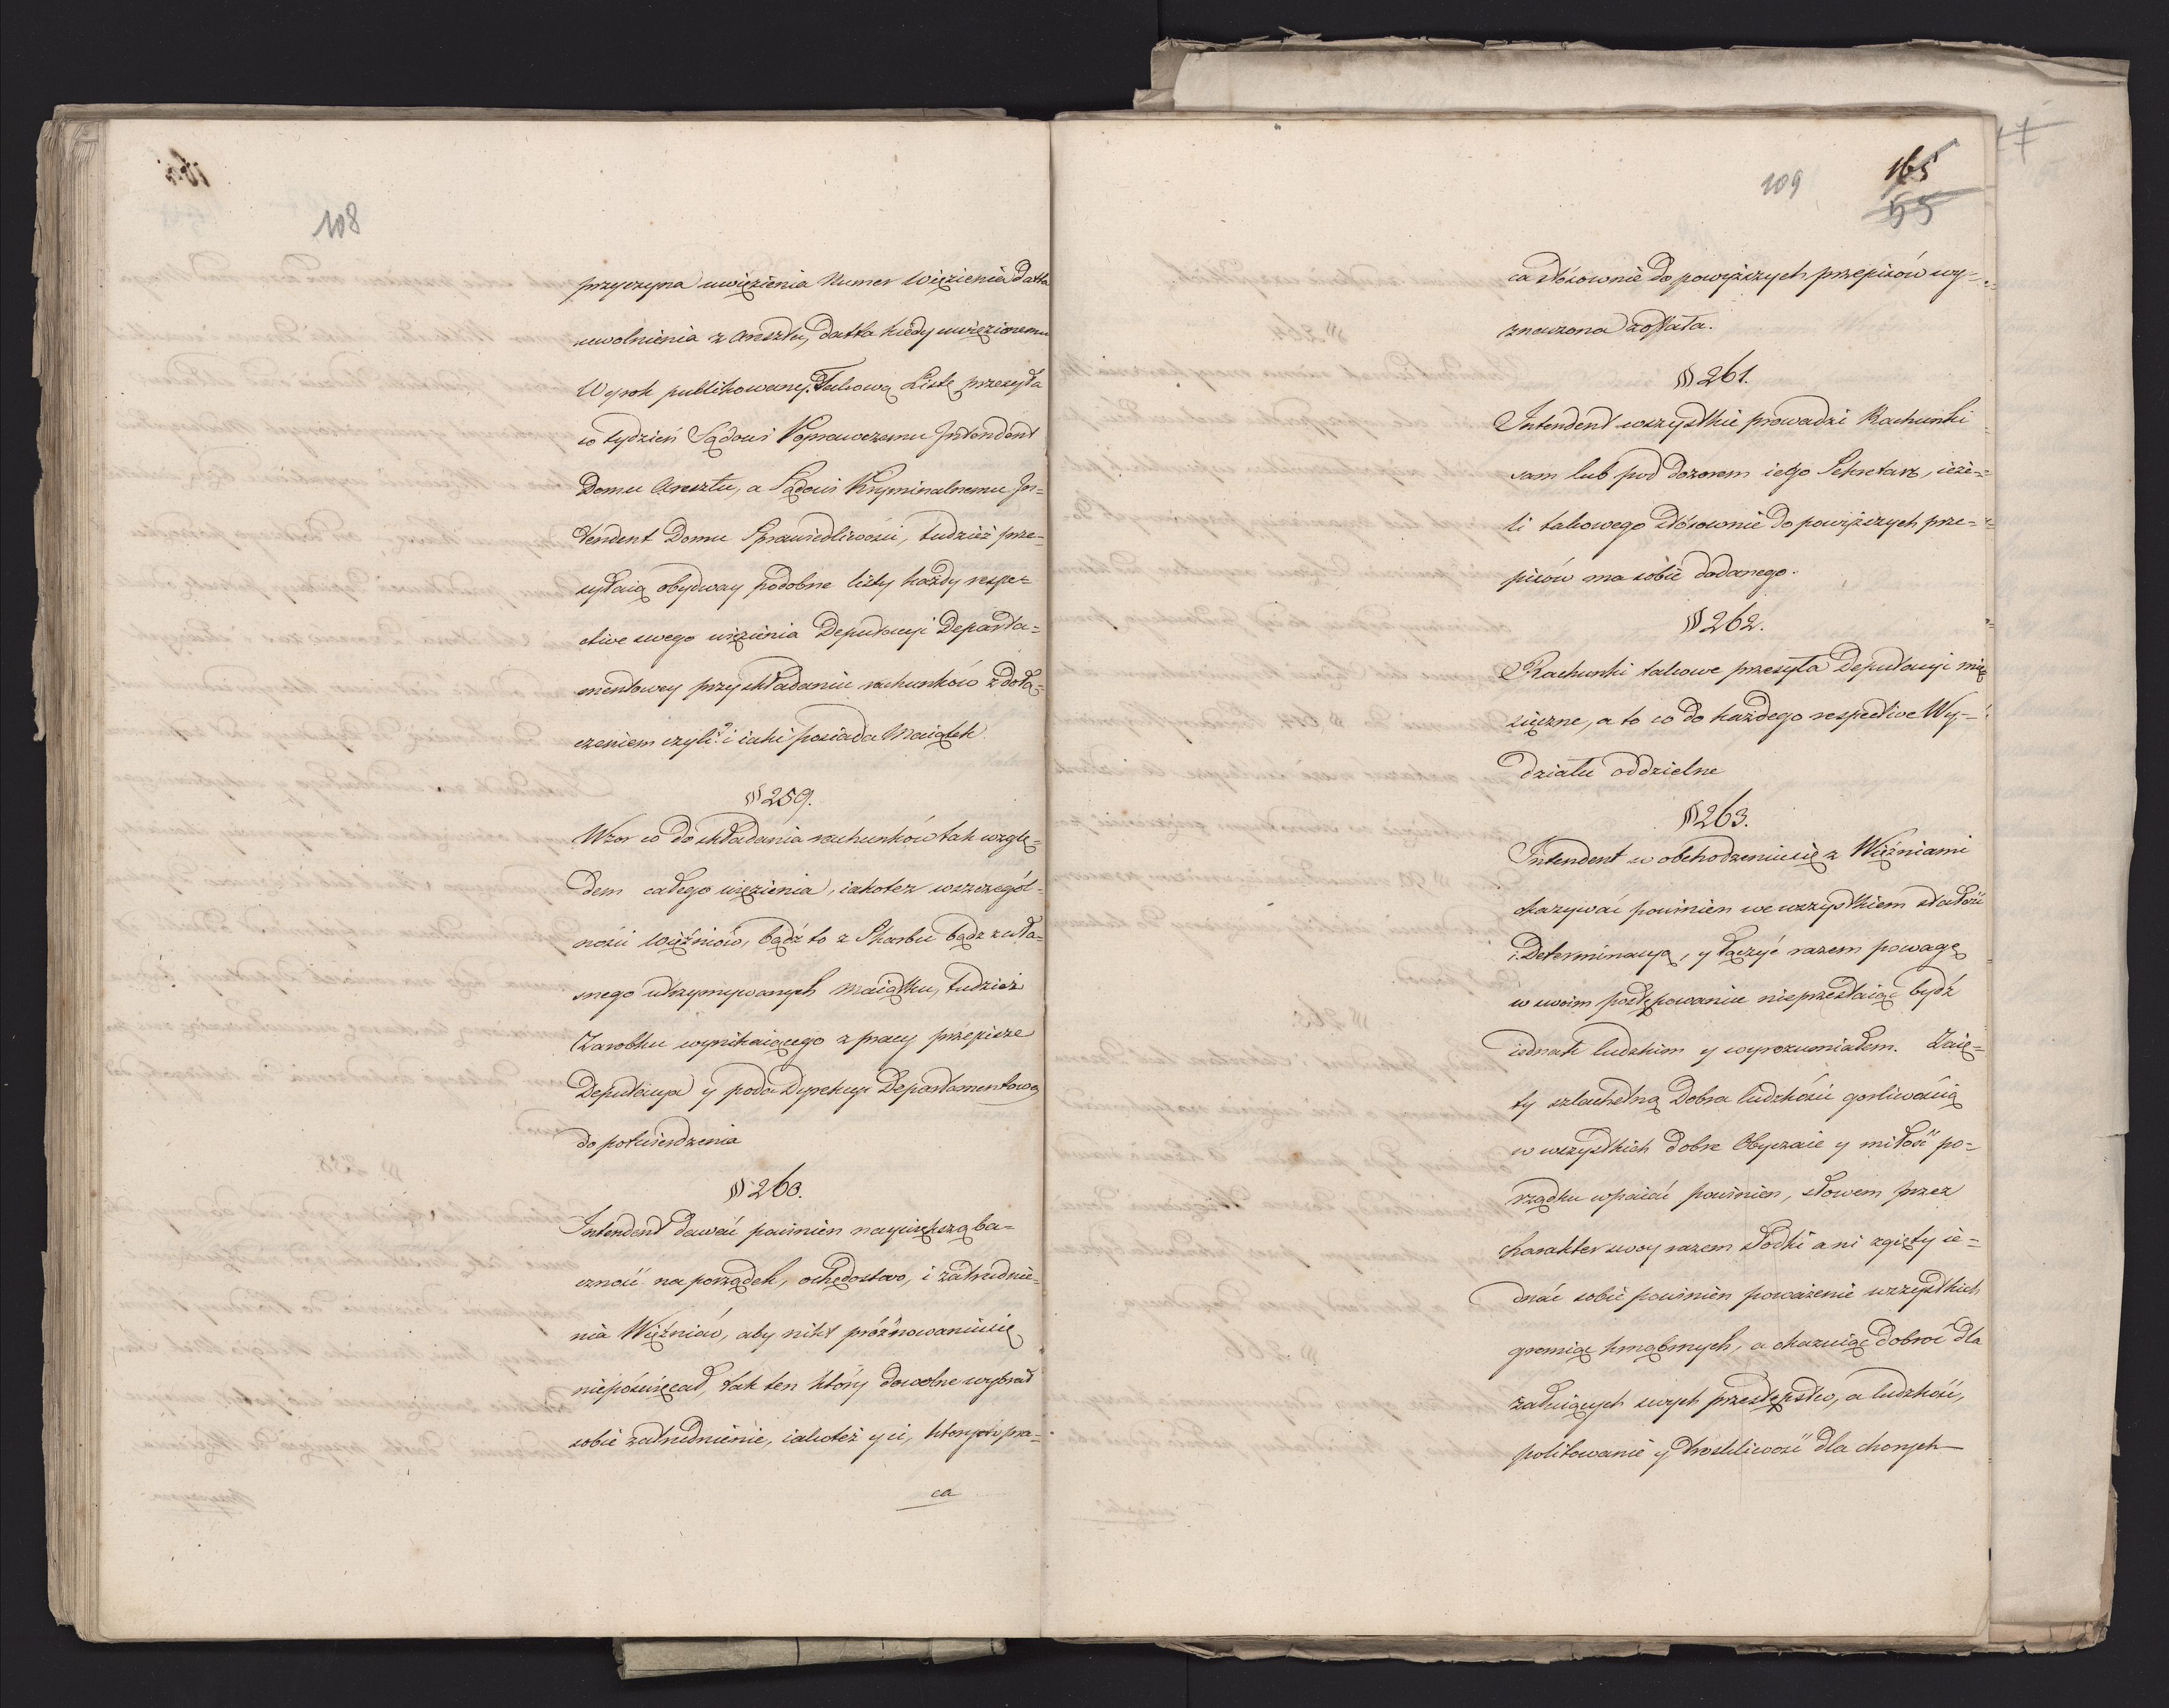 108
przyczyna uwięzienia Numer Więzienia Datta
uwolnienia z Aresztu, datta kiedy uwięzionemu
Wyrok publikowany. Takową Listę przesyła
co tydzień Sądowi Poprawczemu Intendent
Domu Aresztu, a Sądowi Kryminalnemu In=
tendent Domu Sprawiedliwości, tudzież prze=
syłaią obydway podobne listy każdy respe=
ctive swego więzienia Deputacyi Departa=
mentowey przy składaniu rachunków z dołą=
czeniem czyli? i iaki posiada Maiątek.
§ 259.
Wzor co do składania rachunków tak wzglę=
dem całego więzienia, iakotez wszczegól=
ności Więźniów, bądź to z Skarbu bądz z wła=
snego utrzymywanych maiątku, tudzież
Zarobku wynikaiącego z pracy przepisze
Deputacya y poda Dyrekcyi Departamentowey
do potwierdzenia
§ 260.
Intendent dawać powinien naywiększą ba=
czność na porządek, ochędostwo, i zatrudnie=
nia Więźniów, aby nikt próżnowaniu się
niepoświęcał, tak ten który dowolne wybrał
sobie zatrudnienie, iakoteż y ci, ktorym pra=
ca
109
165
55
ca stósownie do powyższych przepisów wy=
znaczona została.
§ 261.
Intendent wszystkie prowadzi Rachunki
sam lub pod dozorem iego Sekretarz, ieże=
li takowego stósownie do powyższych prze=
pisów ma sobie dodanego.
§ 262.
Rachunki takowe przesyła Deputacyi mie
sięczne, a to co do każdego respective Wy=
działu oddzielne
§ 263.
Intendent w obchodzeniu się z Więźniami
okazywać powinien we wszystkiem stałość
i Determinacyą, y łączyć razem powagę
w swoim postępowaniu nieprzestaiąc bydź
iednak ludzkim y wyrozumiałem. Zaię=
ty szlachetną Dobra ludzkości gorliwością
w wszystkich dobre Obyczaie y miłość po=
rządku wpaiać powinien, słowem przez
charakter swoy razem słodki a ni zgięty ie=
dnać sobie powinien poważenie wszystkich
gromiąc krnąbrnych, a okazuiąc dobroć dla
żałuiących swych przestępstw, a ludzkość,
politowanie y troskliwość dla chorych